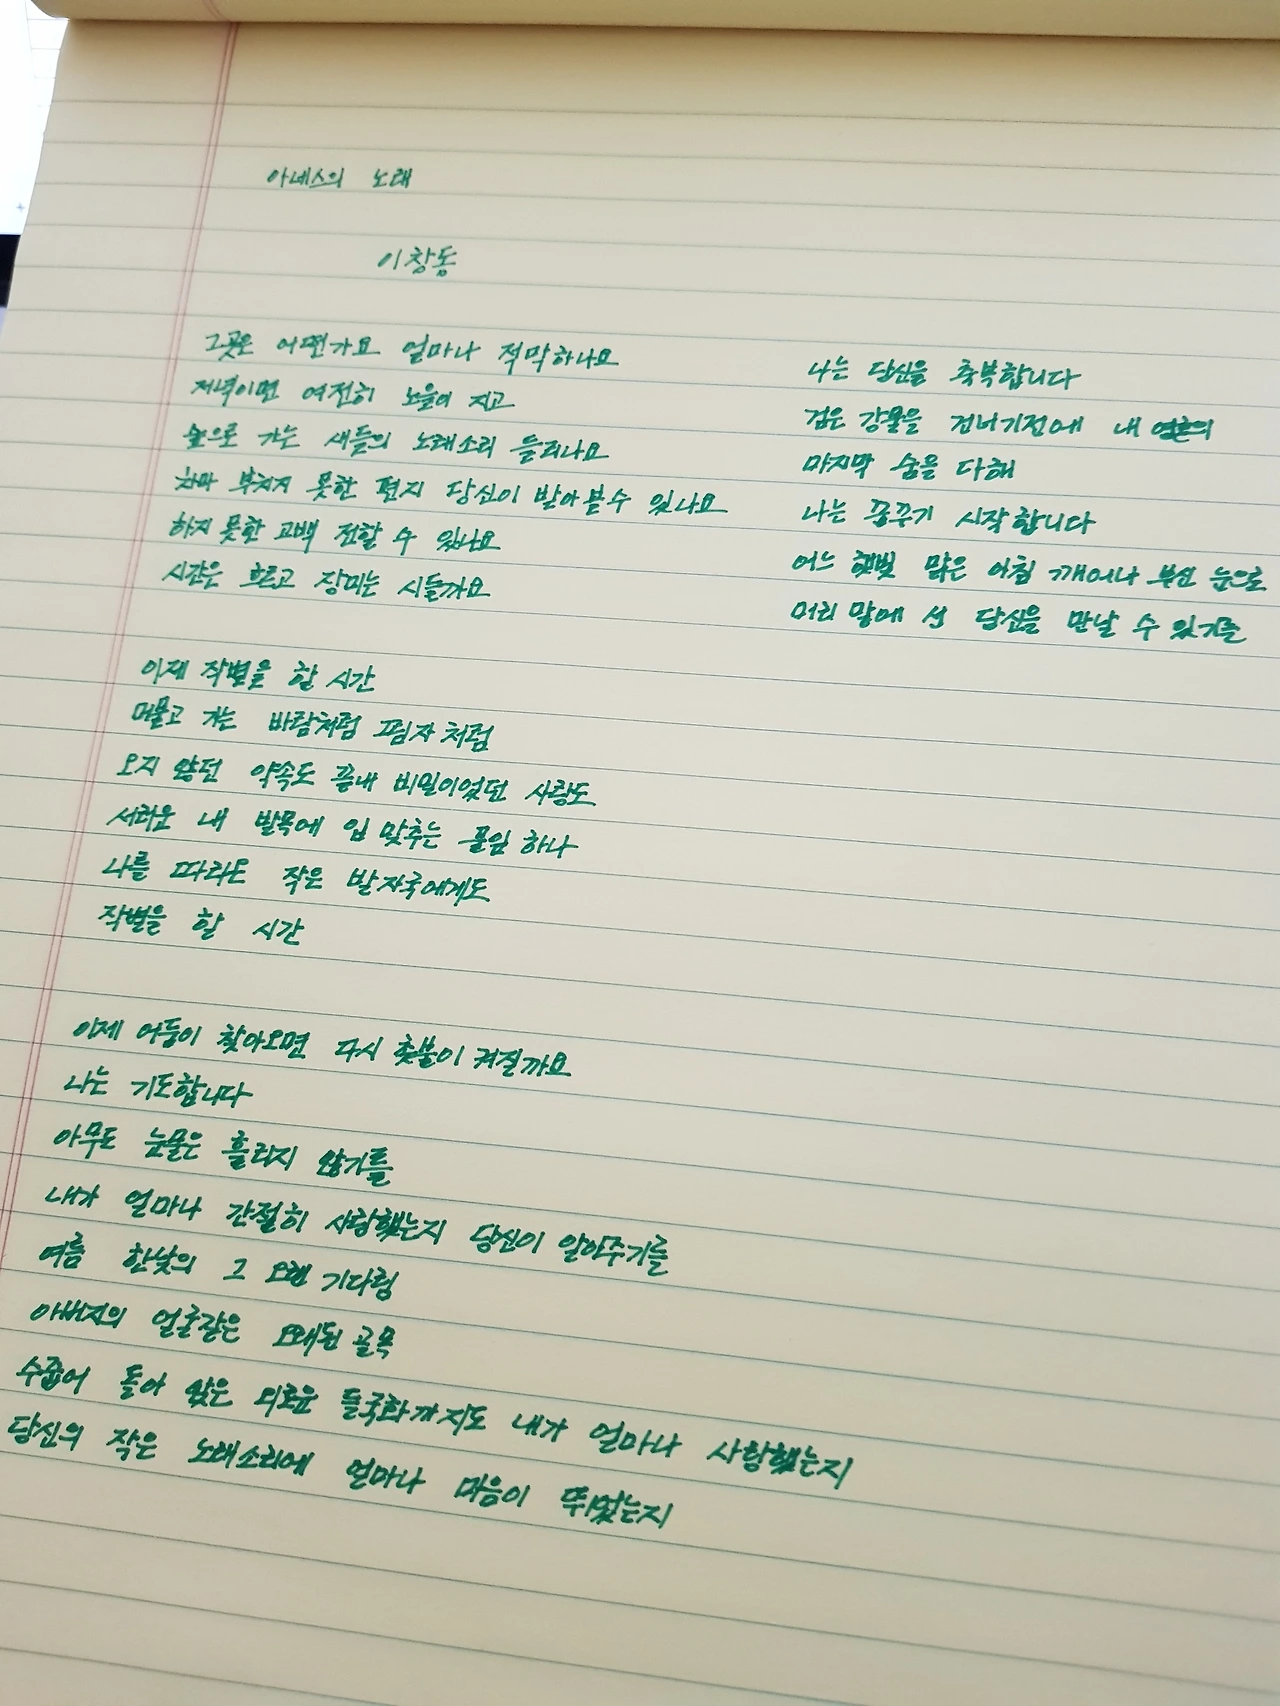 아네스의 노래
이창동
그곳은 어떤가요 얼마나 적막하나요
저녁이면 여전히 노을이 지고
숲으로 가는 새들의 노래소리 들리나요
차마 부치지 못한 편지 당신이 받아볼수 있나요
하지 못한 고백 전할 수 있나요
시간은 흐르고 장미는 시들까요
이제 작별을 할 시간
머물고 가는 바람처럼 그림자처럼
오지 않던 약속도 끝내 비밀이었던 사랑도
서러운 내 발목에 입 맞추는 풀잎 하나
나를 따라온 작은 발자국에게도
작별을 할 시간
이제 어둠이 찾아오면 다시 촛불이 켜질까요
나는 기도합니다
아무도 눈물은 흘리지 않기를
내가 얼마나 간절히 사랑했는지 당신이 알아주기를
여름 한낮의 그 오랜 기다림
아버지의 얼굴같은 오래된 골목
수줍어 돌아 앉은 외로운 들국화까지도 내가 얼마나 사랑했는지
당신의 작은 노래소리에 얼마나 마음이 뛰었는지
나는 당신을 축복합니다
검은 강물을 건너기전에 내 영혼의
마지막 숨을 다해
나는 꿈꾸기 시작합니다
어느 햇빛 맑은 아침 깨어나 부신 눈으로
머리 맡에 선 당신을 만날 수 있기를